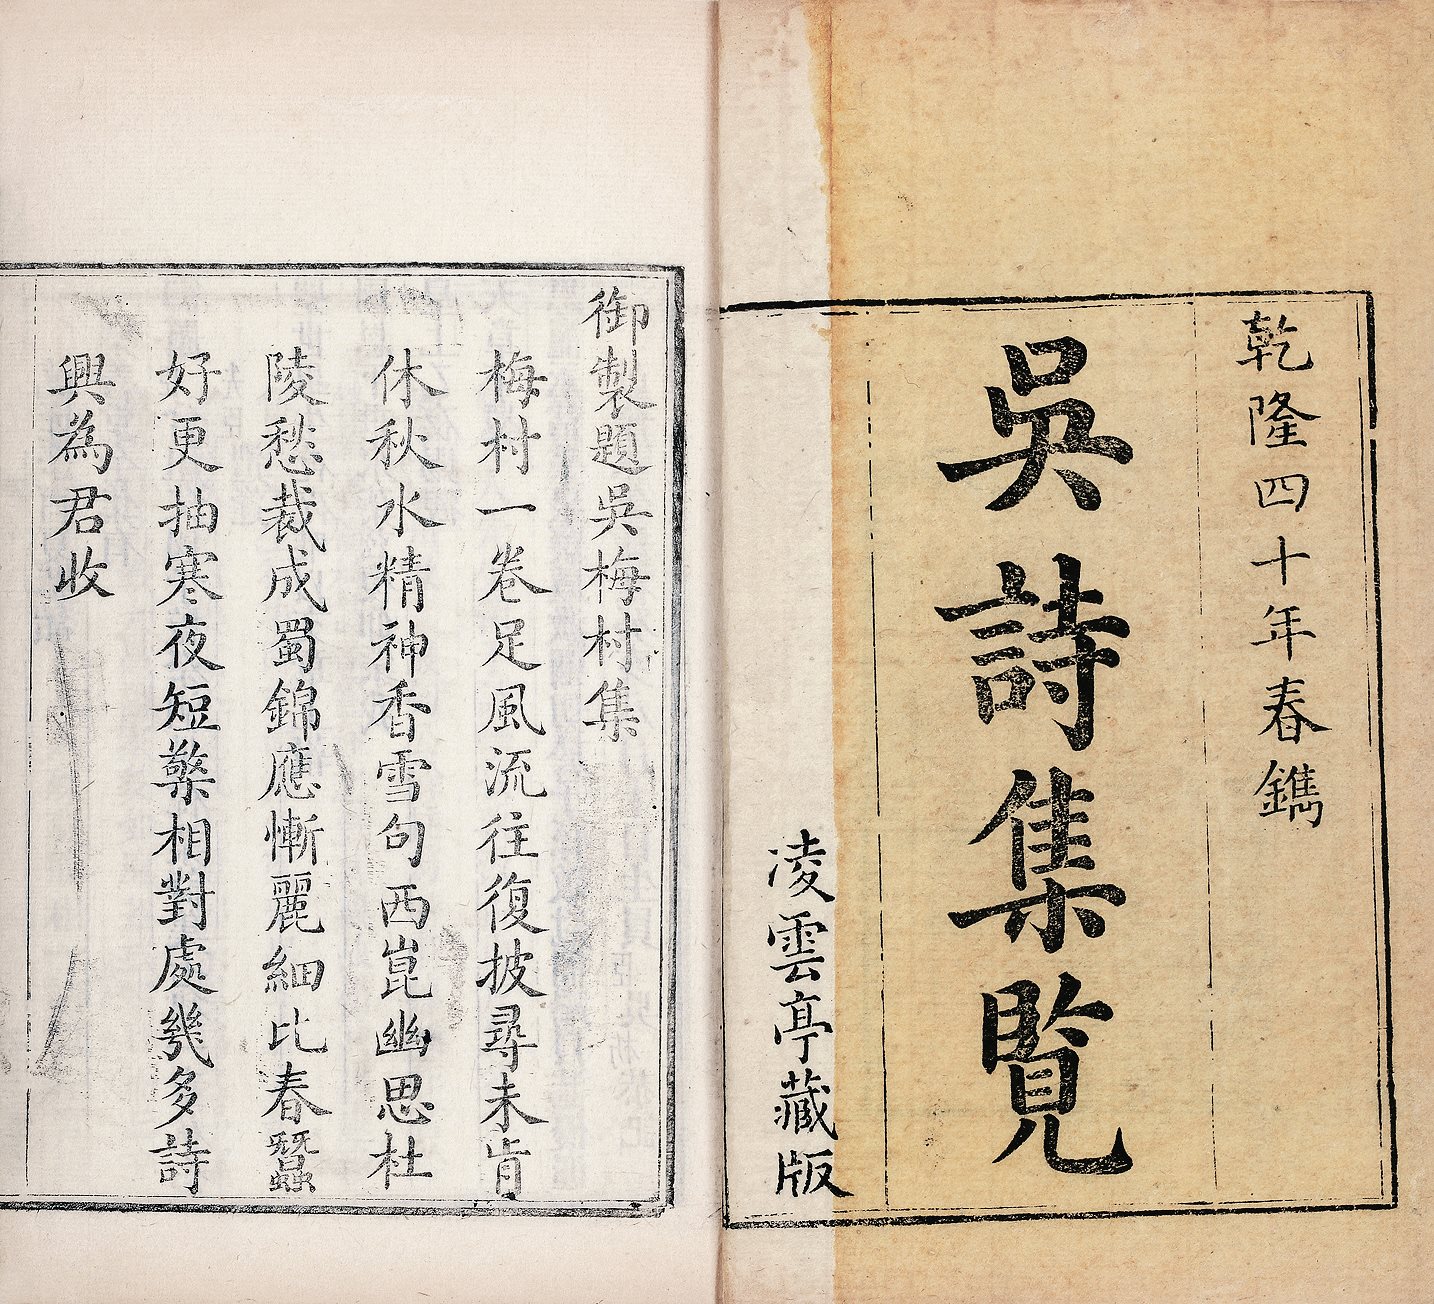 乾隆四十年春鐫
吳詩集覧
凌雲亭藏版
御製題吳梅村集
梅村一卷足風流往復披尋未肯
休秋水精神香雪句西崑幽思杜
陵愁裁成蜀錦應慚麗細比春蠶
好更抽寒夜短檠相對處幾多詩
興為君收